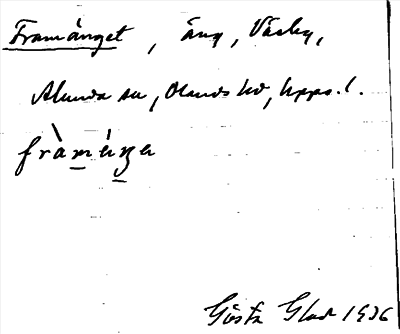 Framänget, äng, Väsby,
Alunda sn, Olands hd, Upps. l.
fràmèŋen
Gösta Glad 1936